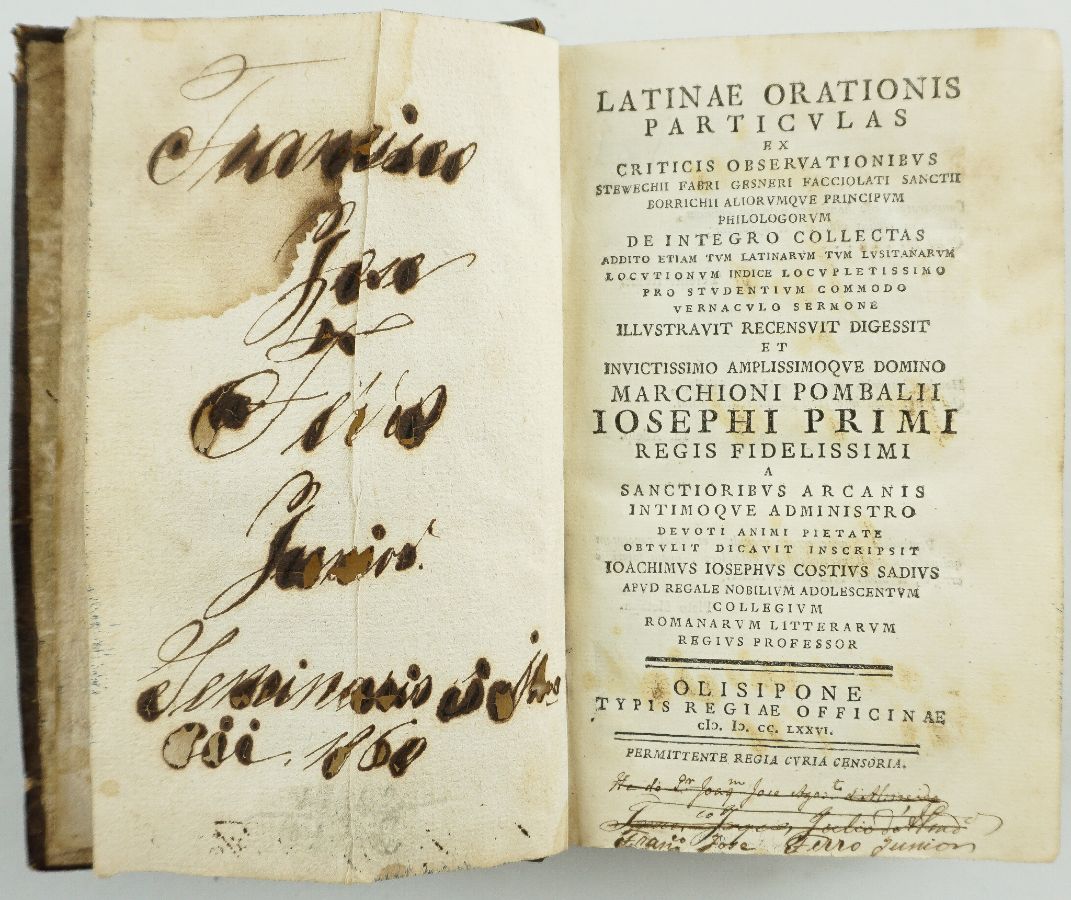 Francisco
Jose
X
Junior.
Seminario
1860
LATINAE ORATIONIS
PARTICVLAS
EX
CRITICIS OBSERVATIONIBVS
STEWECHII FABRI GESNERI FACCIOLATI SANCTII
BORRICHII ALIORVMQVE PRINCIPVM
PHILOLOGORVM
DE INTEGRO COLLECTAS
ADDITO ETIAM TVM LATINARVM TVM LVSITANARVM
LOCVTIONVM INDICE LOCVPLETISSIMO
PRO STVDENTIVM COMMODO
VERNACVLO SERMONE
ILLVSTRAVIT RECENSVIT DIGESSIT
ET
INVICTISSIMO AMPLISSIMOQVE DOMINO
MARCHIONI POMBALII
IOSEPHI PRIMI
REGIS FIDELISSIMI
A
SANCTIORIBVS ARCANIS
INTIMOQVE ADMINISTRO
DEVOTI ANIMI PIETATE
OBTVLIT DICAVIT INSCRIPSIT
IOACHIMVS IOSEPHVS COSTIVS SADIVS
APVD REGALE NOBILIVM ADOLESCENTVM
COLLEGIVM
ROMANARVM LITTERARVM
REGIVS PROFESSOR
OLISIPONE
TYPIS REGIAE OFFICINAE
cIↃ. IↃ. CC. LXXVI.
PERMITTENTE REGIA CVRIA CENSORIA.
He do Joaqm Jose Agosto d'Almeida
Franco Julio
Jose Ferro Junior